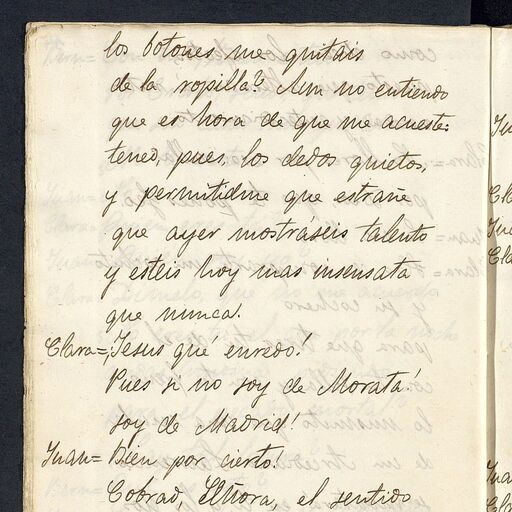 los botones me quitáis
de la ropilla? Aun no entiendo
que es hora de que me acueste:
tened, pues, los dedos quietos,
y permitidme que estrañe
que ayer mostráseis talento
y esteis hoy mas insensata
que nunca.
Clara= ¡Jesus qué enredo!
Pues si no soy de Morata!
soy de Madrid!
Juan= Bien por cierto!
Cobrad, Señora, el sentido